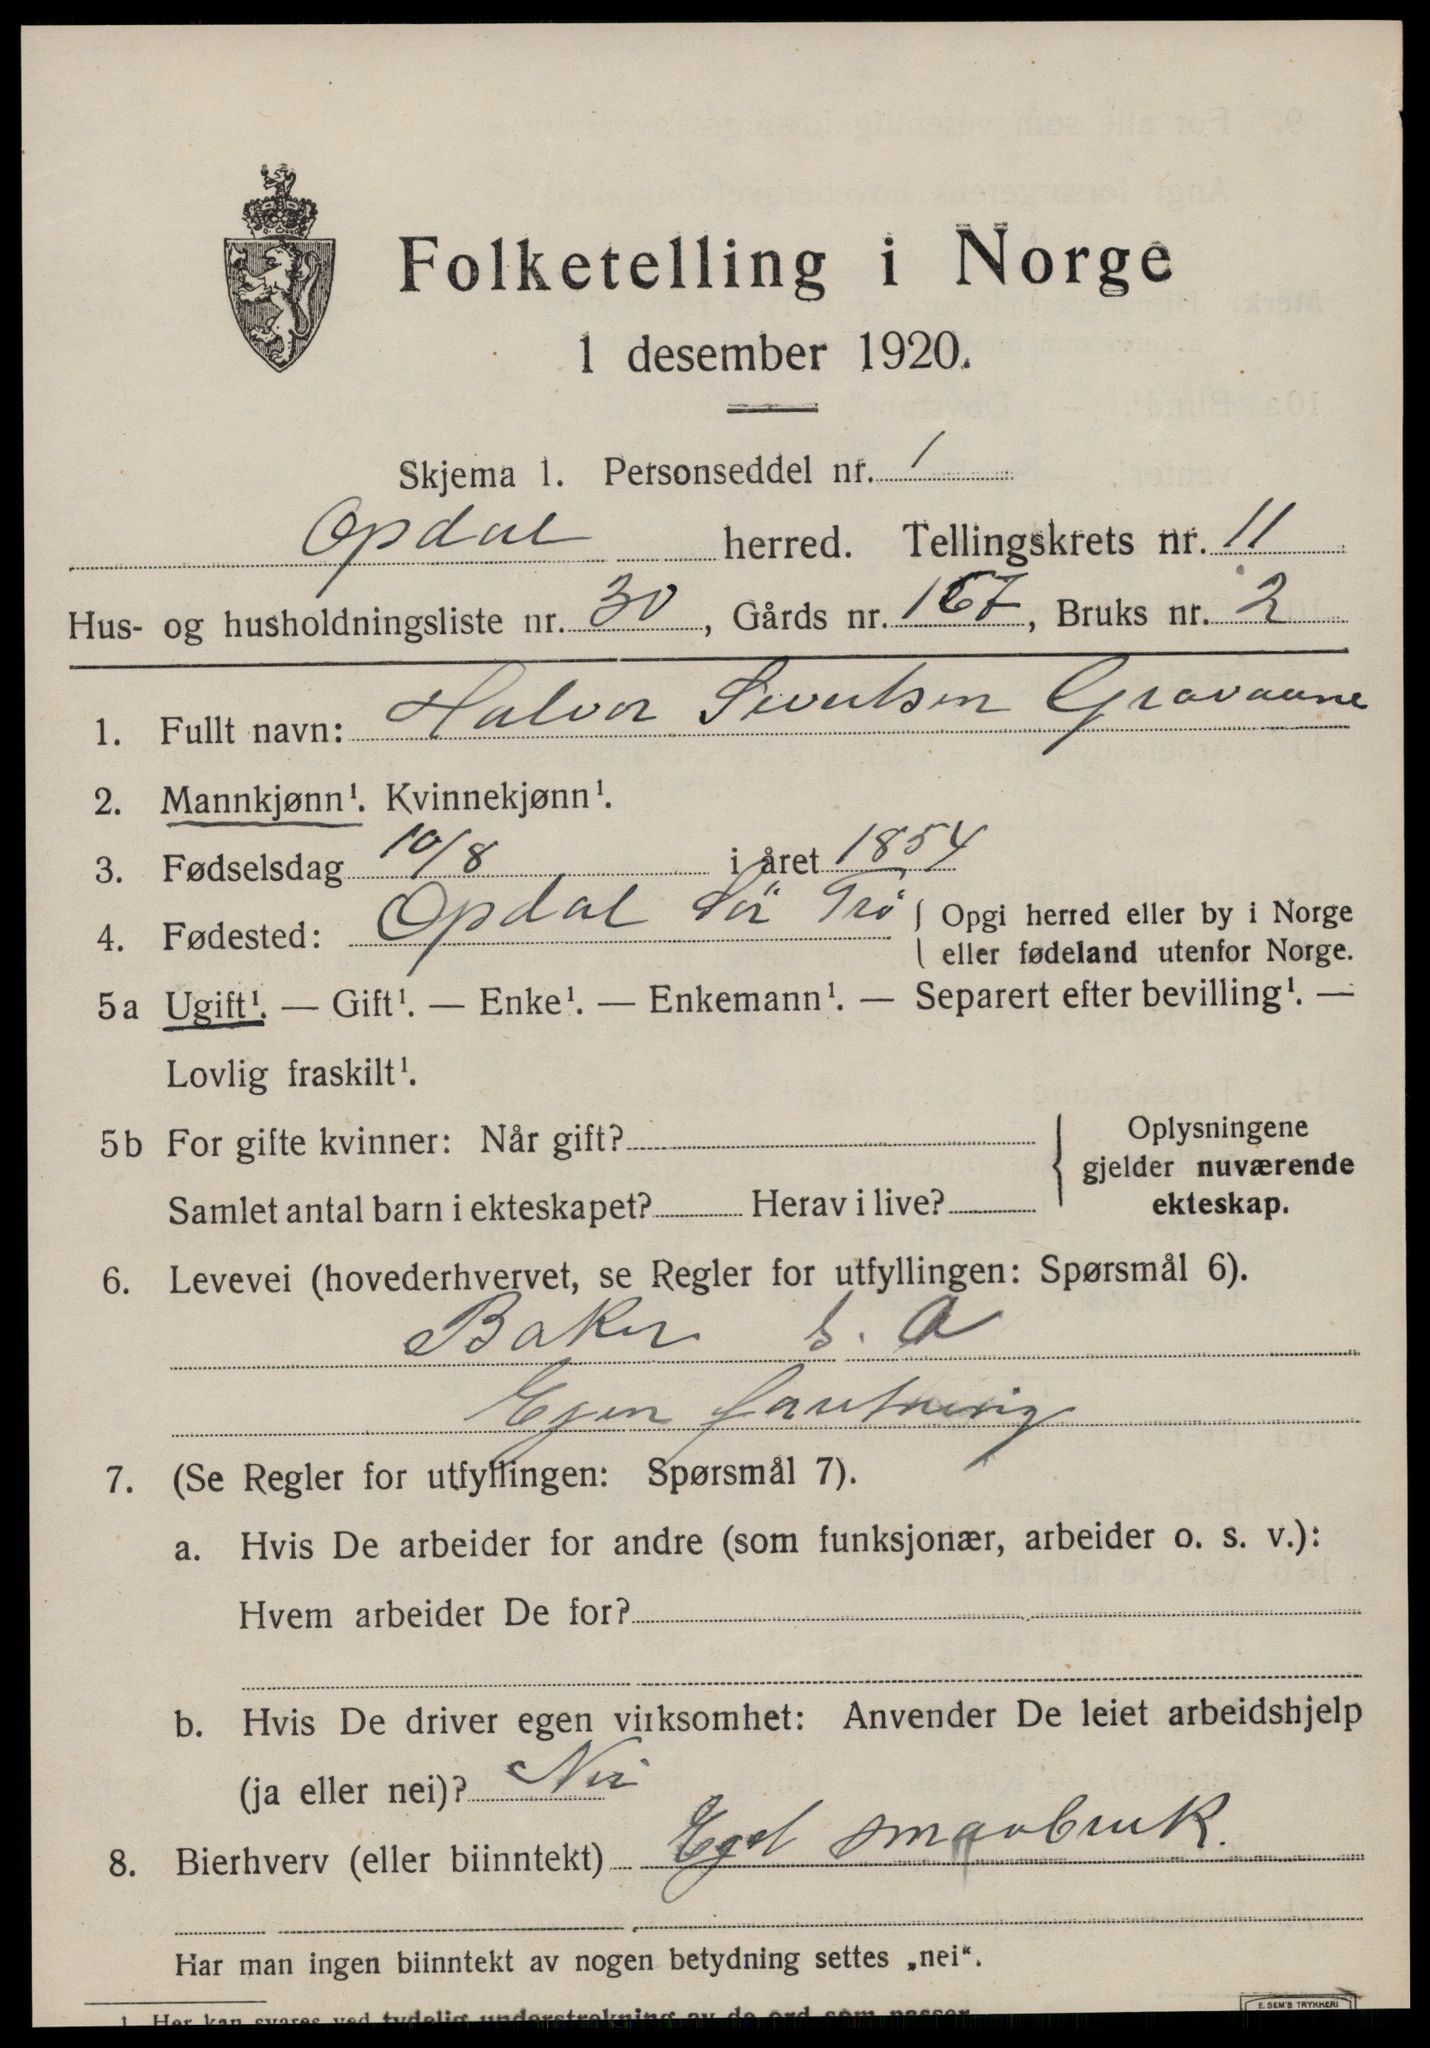 Folketelling i Norge
1 desember 1920.
Skjema 1. Personseddel nr. 1
Opdal herred. Tellingskrets nr. 11
Hus- og husholdningsliste nr. 30, Gårds nr. 167, Bruks nr. 2
1. Fullt navn: Halvor Sivertsen Gravaune
2. Mannkjønn¹. Kvinnekjønn¹.
3. Fødselsdag 10/8 i året 1854
4. Fødested: Opdal Sör Trö { Opgi herred eller by i Norge
eller fødeland utenfor Norge.
5a Ugift¹. — Gift¹. — Enke¹. — Enkemann¹. — Separert efter bevilling¹. —
Lovlig fraskilt¹.
5b For gifte kvinner: Når gift? { Oplysningene
gjelder nuværende
Samlet antal barn i ekteskapet? Herav i live? ekteskap.
6. Levevei (hovederhvervet, se Regler for utfyllingen: Spørsmål 6).
Baker
Egen
7. (Se Regler for utfyllingen: Spørsmål 7).
a. Hvis De arbeider for andre (som funksjonær, arbeider o. s. v.):
Hvem arbeider De for?
b. Hvis De driver egen virksomhet: Anvender De leiet arbeidshjelp
(ja eller nei)? Nei
8. Bierhverv (eller biinntekt) Eget smaabruk.
Har man ingen biinntekt av nogen betydning settes „nei“.
1. Her kan svares ved tydelig understrekning av de ord som passer.
E. SEM'S TRYKKERI